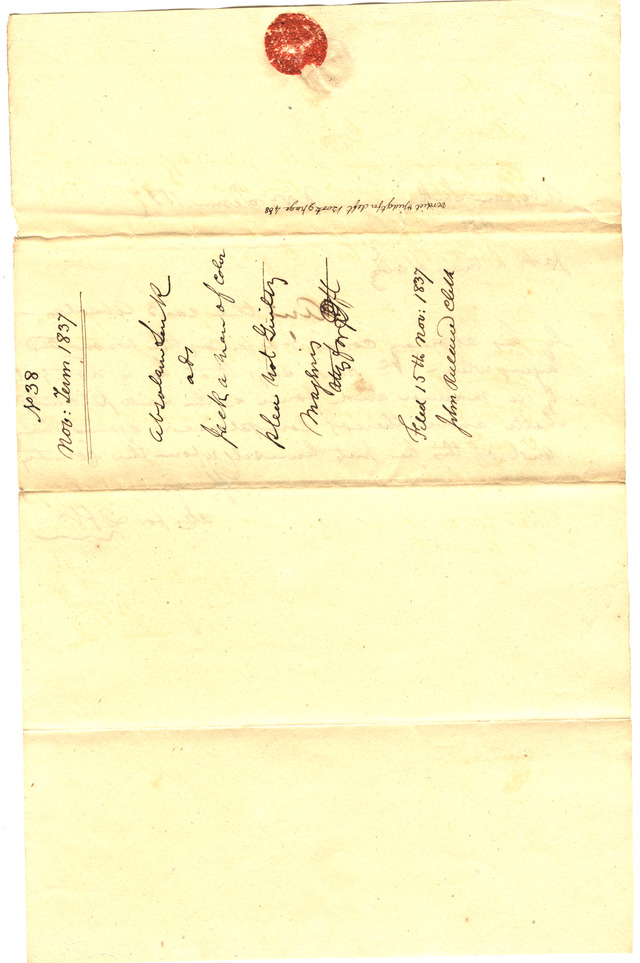 N 38
Nov: Term 1837
Absolam Link
ads
Jack a man of Color
plea Not Guilty
Atty for Dft
Filed 15th Nov: 1837
John Ruland Clerk
verdict & judgt for deft Book 9 page 468